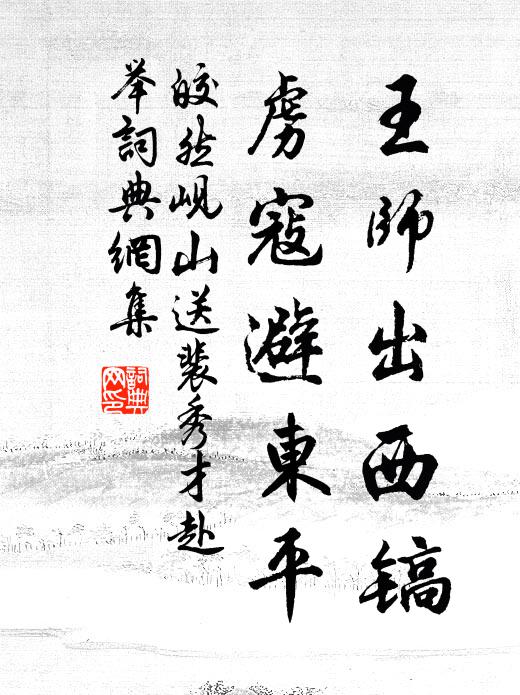 王師出西镐
虜寇避東平
皎然峴山送裴秀才赴
举詞典網集
詞典
网印